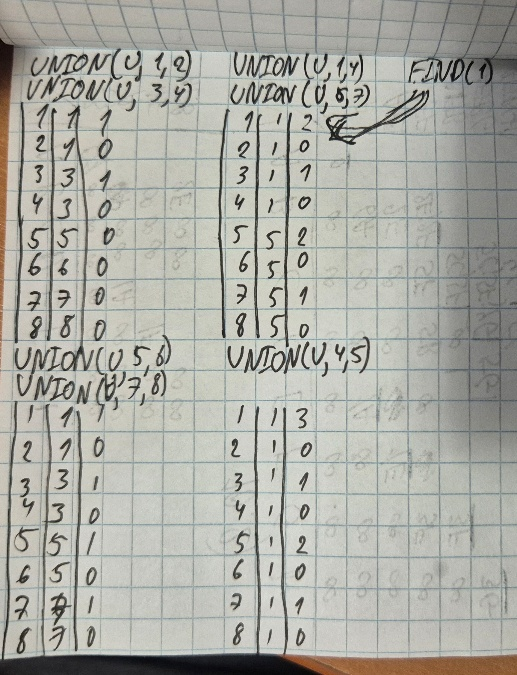 UNION(U, 1,2)
UNION(U, 3,4)
1 1 1
2 1 0
3 3 1
4 3 0
5 5 0
6 6 0
7 7 0
8 8 0
UNION(U, 5,6)
UNION(U, 7,8)
1 1 1
2 1 0
3 3 1
4 3 0
5 5 1
6 5 0
7 7 1
8 7 0
UNION(U,1,4)
UNION(U,5,7)
1 1 2
2 1 0
3 1 1
4 1 0
5 5 2
6 5 0
7 5 1
8 5 0
UNION(U,4,5)
1 1 3
2 1 0
3 1 1
4 1 0
5 1 2
6 1 0
7 1 1
8 1 0
FIND(1)